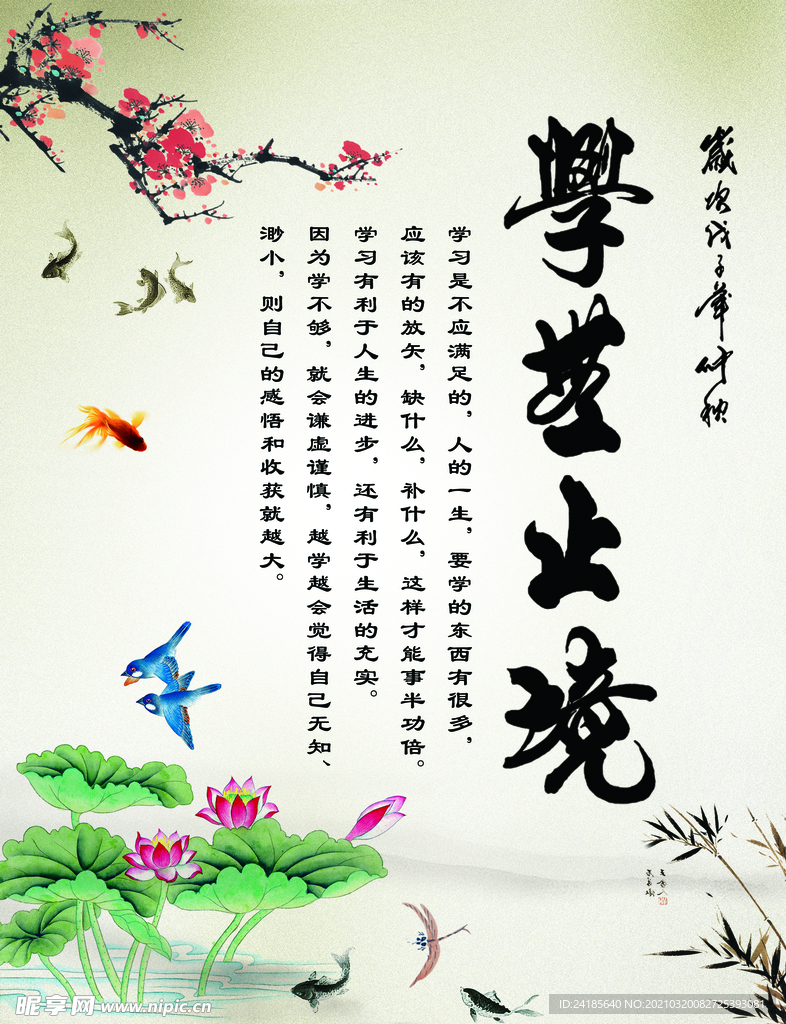 歲次戊子年仲秋
學無止境
学习是不应满足的，人的一生，要学的东西有很多，
应该有的放矢，缺什么，补什么，这样才能事半功倍。
学习有利于人生的进步，还有利于生活的充实。
因为学不够，就会谦虚谨慎，越学越会觉得自己无知、
渺小，则自己的感悟和收获就越大。
昵享网 www.nipic.cn
ID:24185640 NO:20210320082725393081